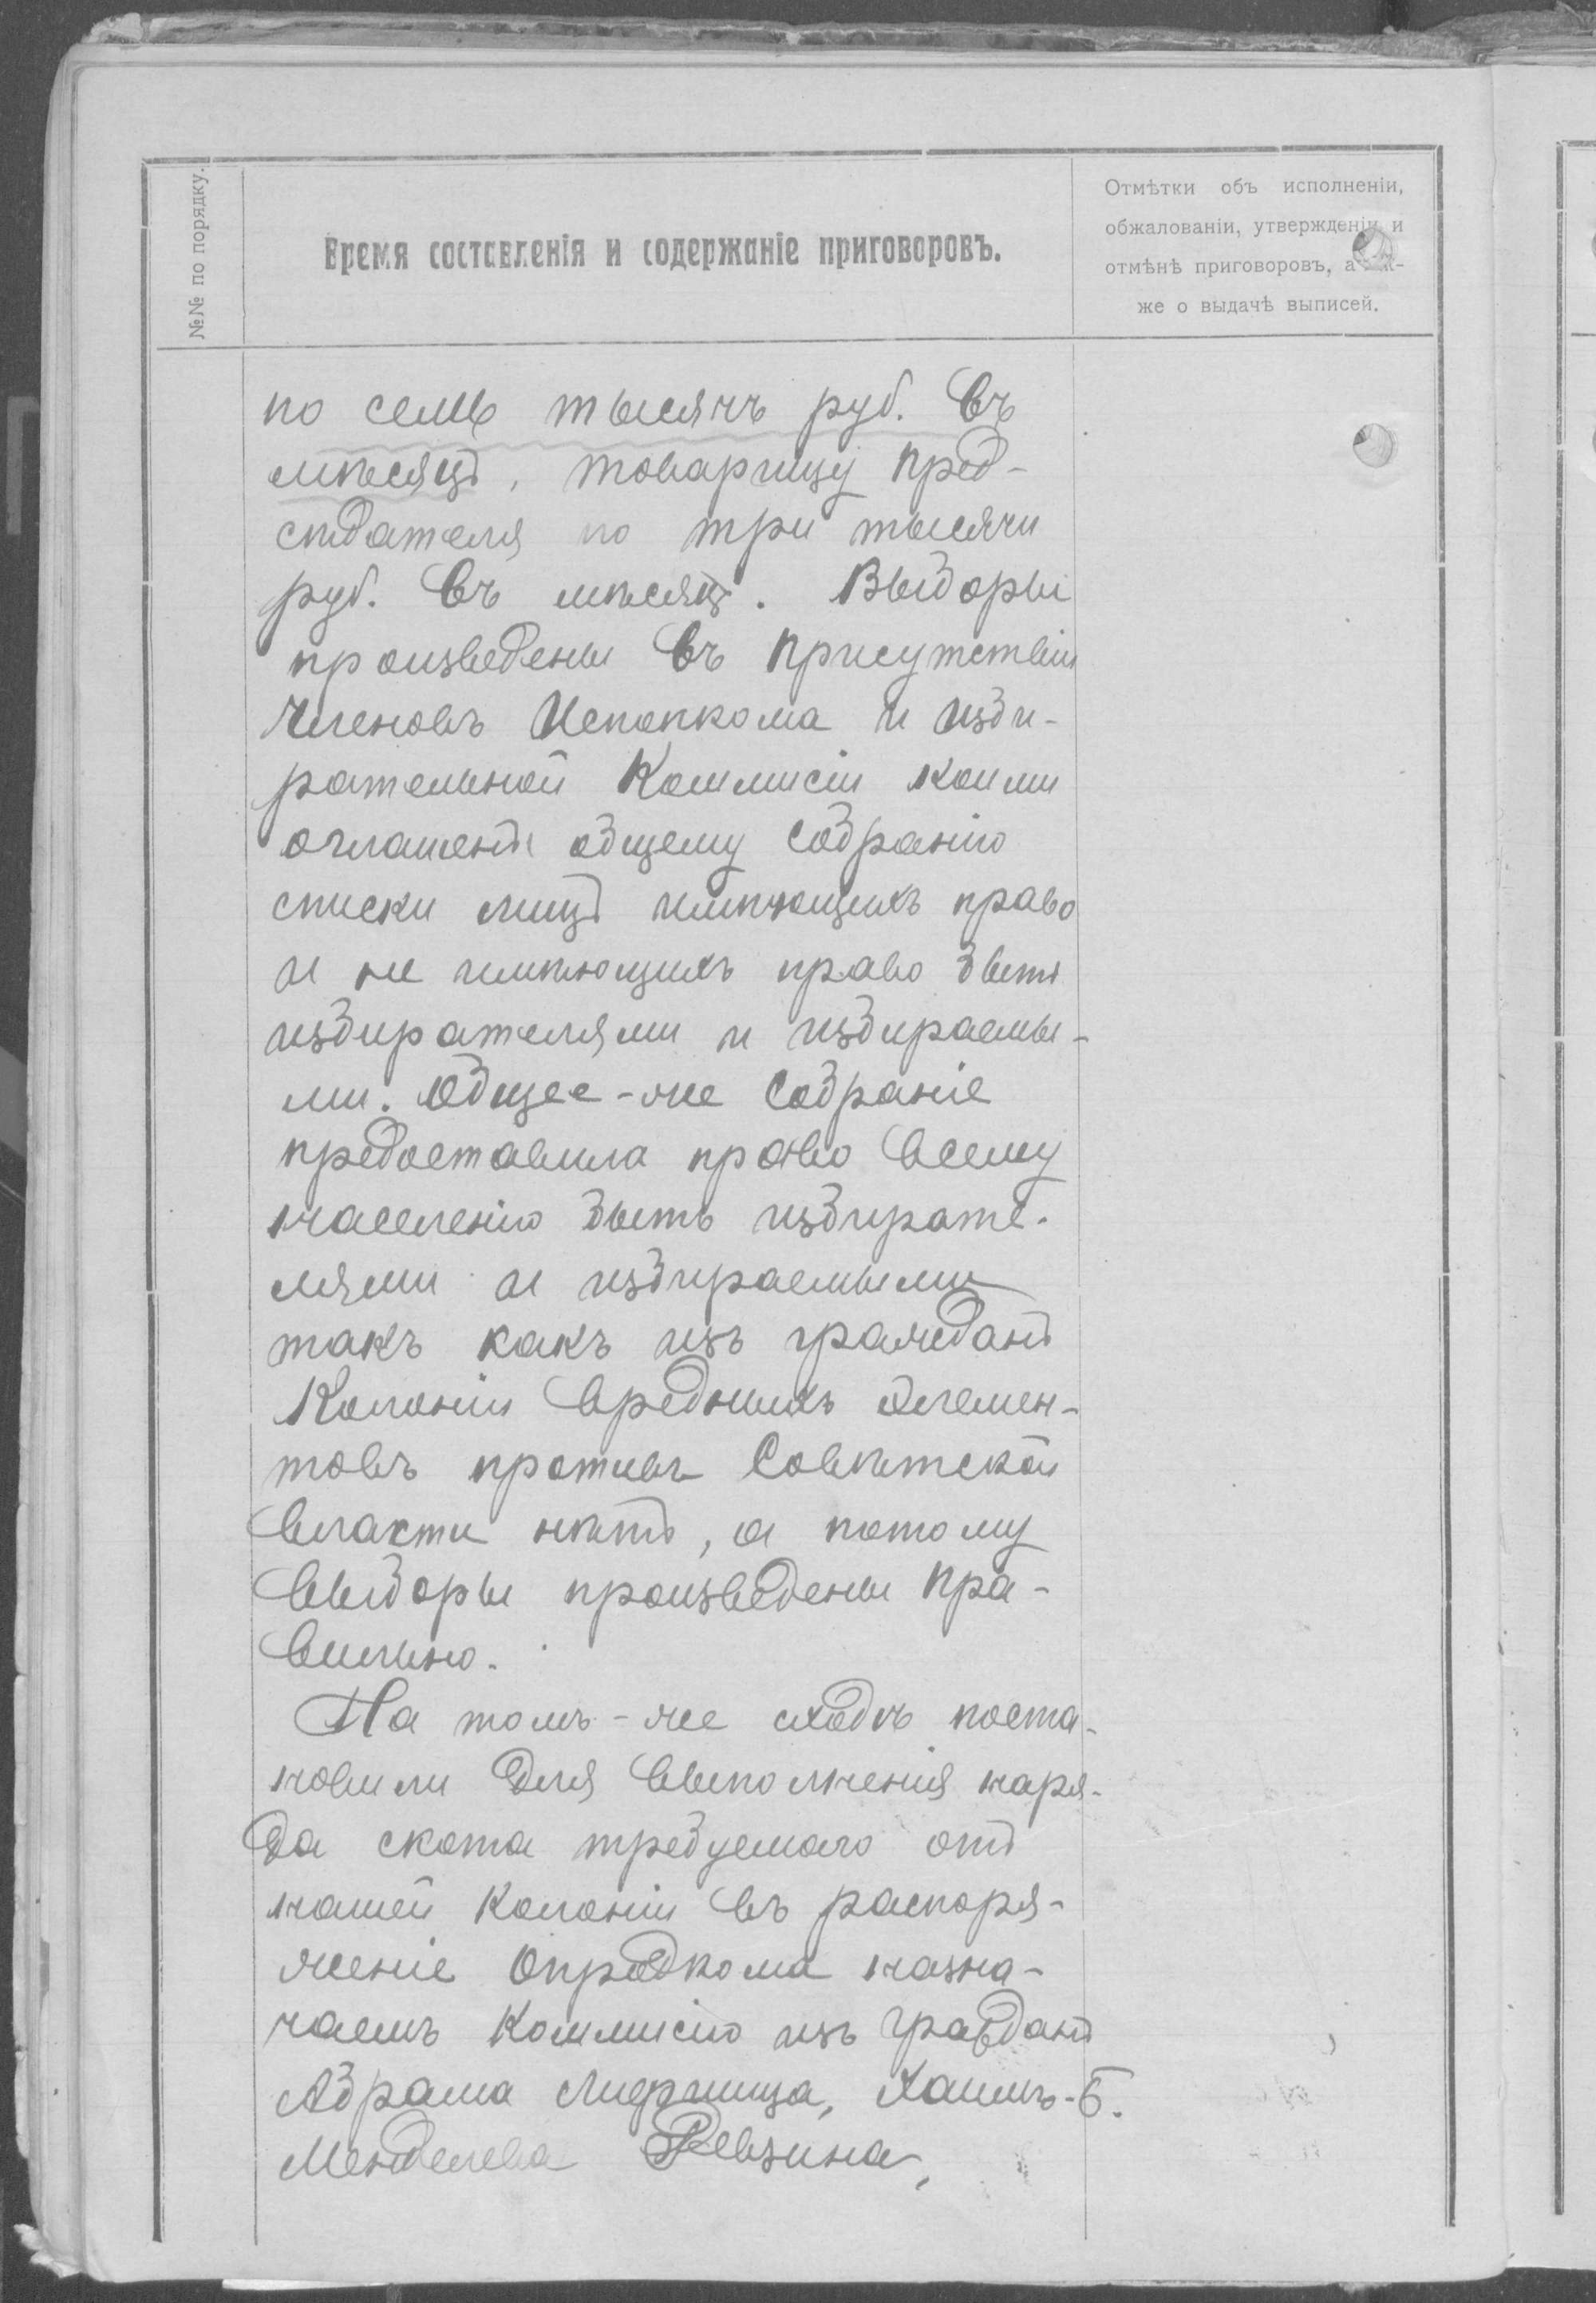 №№ по порядку.
Время составленія и содержаніе приговоровъ.
Отмѣтки объ исполненіи,
обжалованіи, утвержденіи и
отмѣнѣ приговоровъ, а так-
же о выдачѣ выписей.
по семь тысячъ руб. въ
мѣсяцъ, товарищу пред-
сѣдателя по три тысячи
руб. въ мѣсяцъ. Выборы
произведены въ присутствіи
членовъ Исполкома и изби-
рательной Коммисіи коими
оглашены общему собранію
списки лицъ имѣющихъ право
и не имѣющихъ право быть
избирателями и избираемы-
ми. Общее-же собраніе
предоставила право всему
населенію быть избирате-
лями и избираемыми
такъ какъ изъ гражданъ
Колоніи вредныхъ элемен-
товъ противъ Совѣтской
власти нѣтъ, а потому
выборы произведены пра-
вильно.
На томъ-же сходѣ поста-
новили для выполненія наря-
да скота требуемаго отъ
нашей колоніи въ распоря-
женіе Опродкома назна-
чаемъ коммисію изъ граждан
Абрама Лифшица, Хаимъ-Б.
Менделева Ревзина,